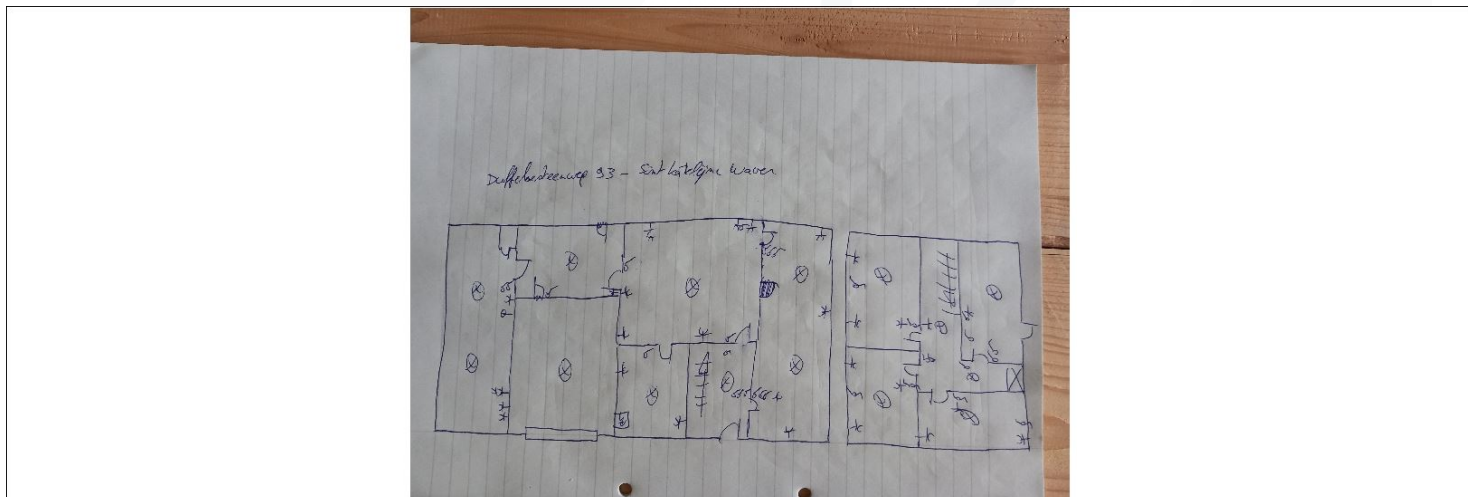 Duffelsesteenweg 93 - Sint Katelijne Waver